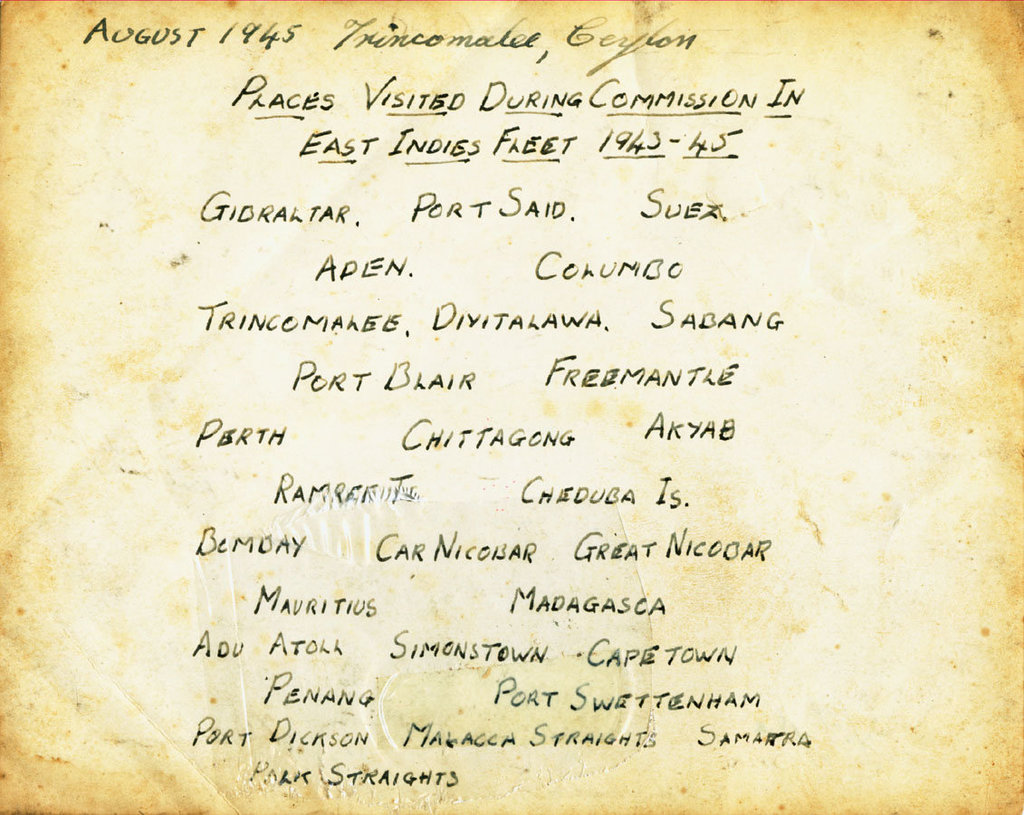 AUGUST 1945 Trincomalee, Ceylon
PLACES VISITED DURING COMMISSION IN
EAST INDIES FLEET 1943-45
GIBRALTAR. PORT SAID. SUEZ.
ADEN. COLUMBO
TRINCOMALEE. DIYITALAWA. SABANG
PORT BLAIR FREEMANTLE
PERTH CHITTAGONG AKYAB
CHEDUBA IS.
BOMBAY CAR NICOBAR GREAT NICOBAR
MAURITIUS MADAGASCA
ADU ATOLL SIMONSTOWN CAPETOWN
PENANG PORT SWETTENHAM
PORT DICKSON MALACCA STRAIGHTS
PALK STRAIGHTS